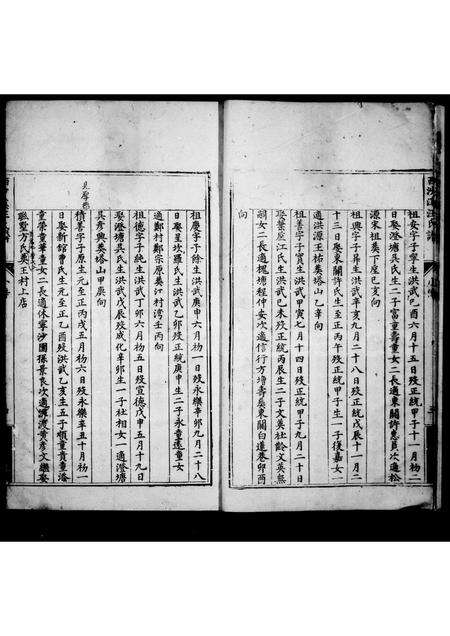 祖安字子寧生洪武己酉六月十五日歿正統甲子十一月初二
日娶澄塘吳氏生二子富童壽童女二長適東關許思員次適松
源宋祖葵下屋巳亥向
祖興字子昇生洪武辛亥九月二十八日歿正統戊辰十一月二
十三日娶東關許氏生至正丙午歿正統甲子生一子復嘉女一
適洪源王祐葵塔山乙辛向
祖善字子實生洪武甲寅七月十四日歿正統甲子九月二十日
娶葉岔江氏生洪武己未歿正統丙辰生二子文英社齡文英無
嗣女二長適槐塘程仲安次適信行方增壽葵東關白蓮巷卯酉
向
祖慶字子餘生洪武庚申六月初一日歿永樂辛卯九月二十八
日娶呈坎羅氏生洪武乙卯歿正統庚申生二子永童遠童女一
適鄭村鄭宗原葵江村灣壬丙向
祖德字子純生洪武丁卯六月初五日歿宣德戊申五月十九日
娶澄塘吳氏生洪武戊辰歿成化辛卯生一子社相女一適澄塘
吳彥興葵塔山甲庚向
積善字子原生元至正丙戌五月初六日歿永樂辛丑十月初一
日娶新館曹氏生元至正乙酉歿洪武乙亥生五子頑童貴童潘
童榮童華童女二長適休寧沙園孫景良次適潭渡黃彥文繼娶
聯墅方氏葵王村上店